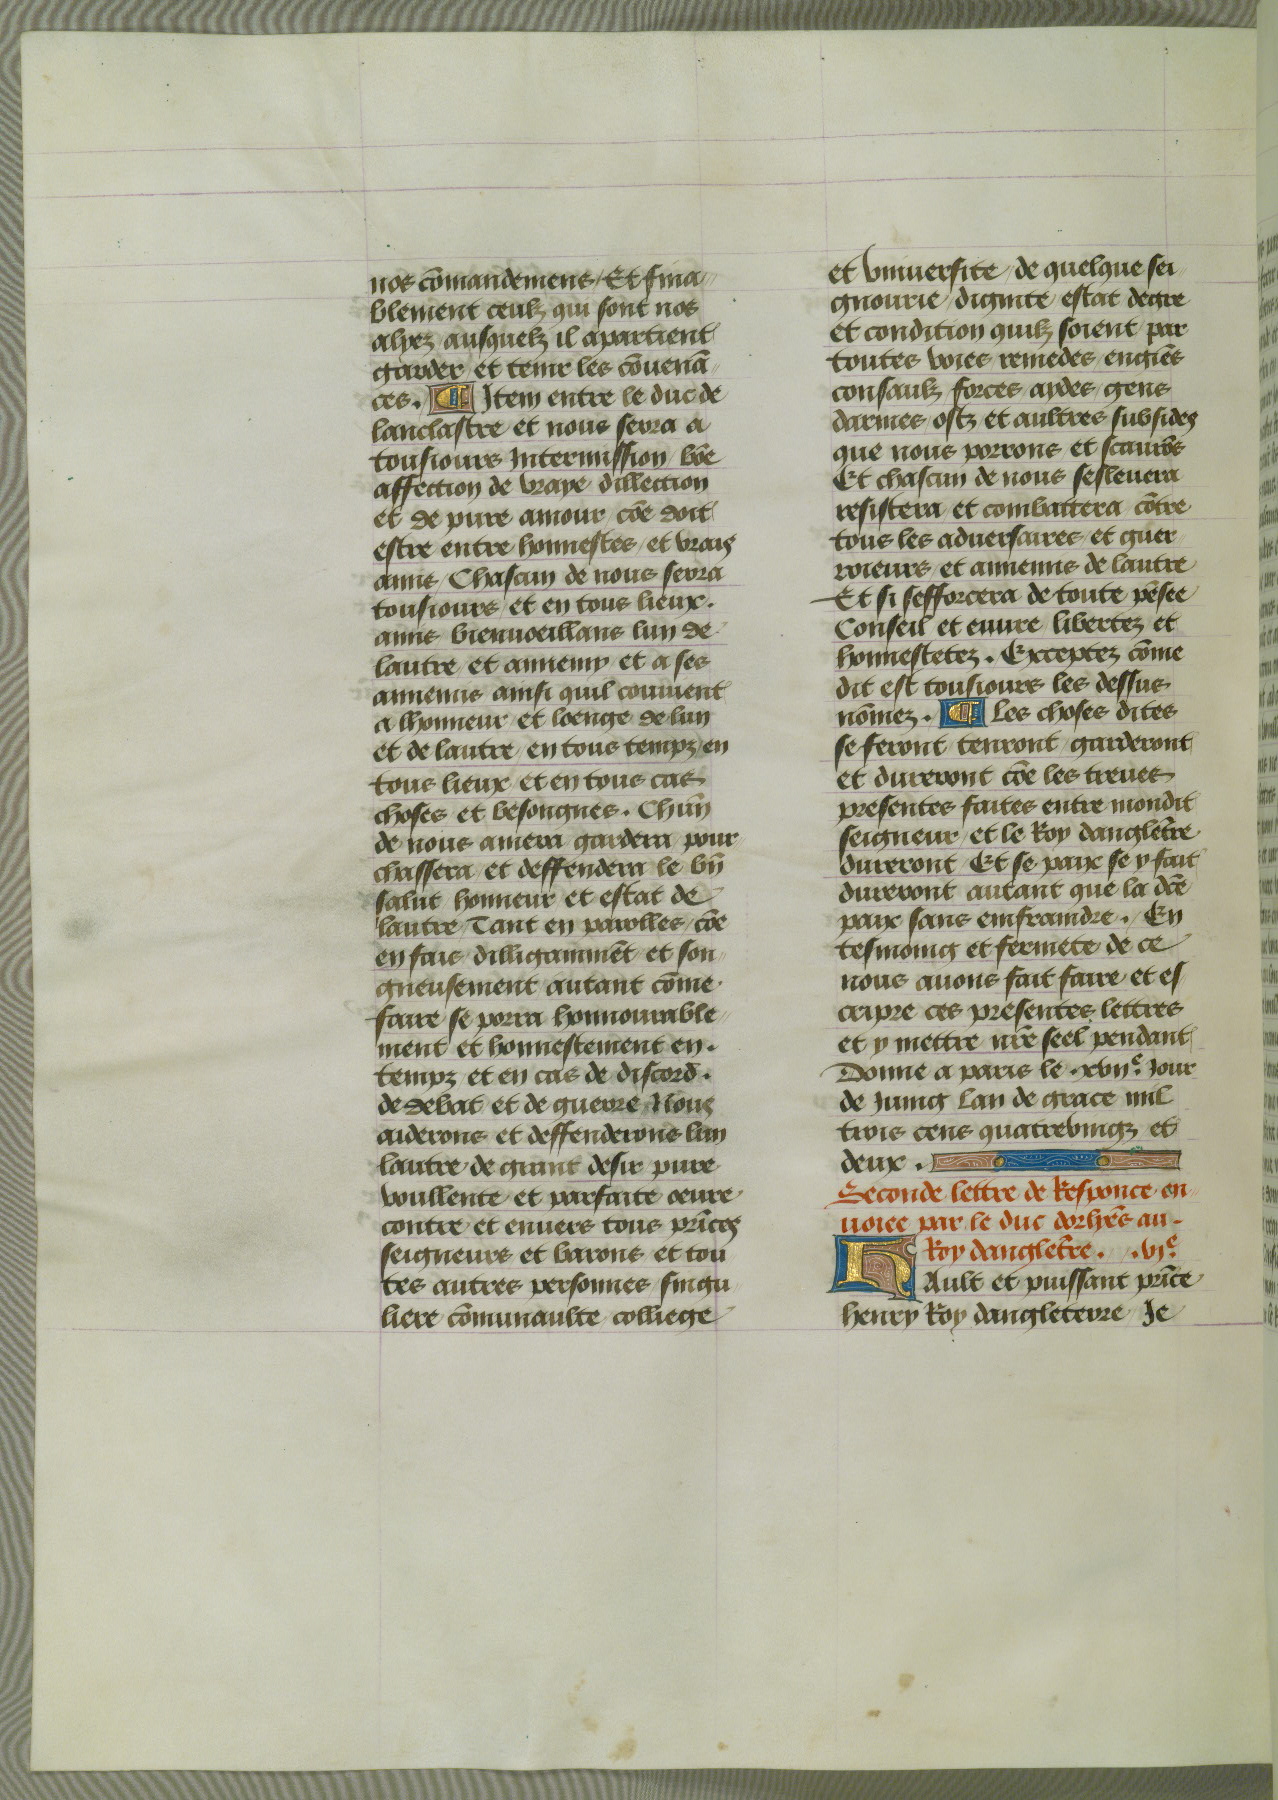 nos cõmandemens / Et fina
blement ceulz qui sont nos
alyez ausquelz il apartient
garder et tenir les cõuenã
ces. ¶ Item entre le duc de
lanclastre et nous sera a
tousiours Intermission bõe
affection de vraye dillection
et de pure amour cõe doit
estre entre honnestes et vrais
amis / Chascun de nous sera
tousiours et en tous lieux.
amis bienuoeillans lun de
lautre et annemy et a ses
annemis ainsi quil conuient
a lhonneur et loenge de lun
et de lautre en tous tempz en
tous lieux et en tous cas
choses et besongnes. Chũn
de nous amera gardera pour
chassera et deffendera le bñ
salut honneur et estat de
lautre Tant en parolles cõe
en fais dilligamment et son
gneusement autant cõme
faire se porra honnourable
ment et honnestement en.
tempz et en cas de discord.
de debat et de guerre Nous
aiderons et deffenderons lun
lautre de grant desir pure
voullente et parfaite œuure
contre et enuers tous prĩces
seigneurs et barons et tou
tes autres personnes singu
liere cõmunaulte colliege
et vniuersite de quelque sei
gnourie dignite estat degre
et condition quilz soient par
toutes voies remedes engiẽs
consaulz forces aydes gens
darmes ostz et aultres subsides
que nous porrons et scaurõs
Et chascun de nous sesleuera
resistera et combatera cõtre
tous les aduersaires et guer
roieurs et annemis de lautre
Et si sefforcera de toute pẽsee
Conseil et euure libertez et
honnestetez. Exceptez cõme
dit est tousiours les dessus
nõmez. ¶ Les choses dites
se feront tenront garderont
et dureront cõe les treues
presentes faites entre mondit
seigneur et le Roy dangletr̃e
dureront Et se paix se y fait
dureront autant que la dc̃e
paix sans enfraindre. En
tesmoing et fermete de ce
nous auons fait faire et es
cripre ces presentes lettres
et y mettre nr̃e seel pendant
Donne a paris le .xvije. Jour
de Juing Lan de grace mil
trois cens quatrevingz et
deux.
Seconde lettre de Responce en
uoiee par le duc dorlie͂s au
Roy dangletr̃e. .vje.
HAult et puissant prĩce
henry Roy dangleterre Je